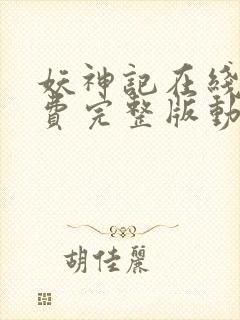 妖神記在綫
費完整版動
胡佳麗